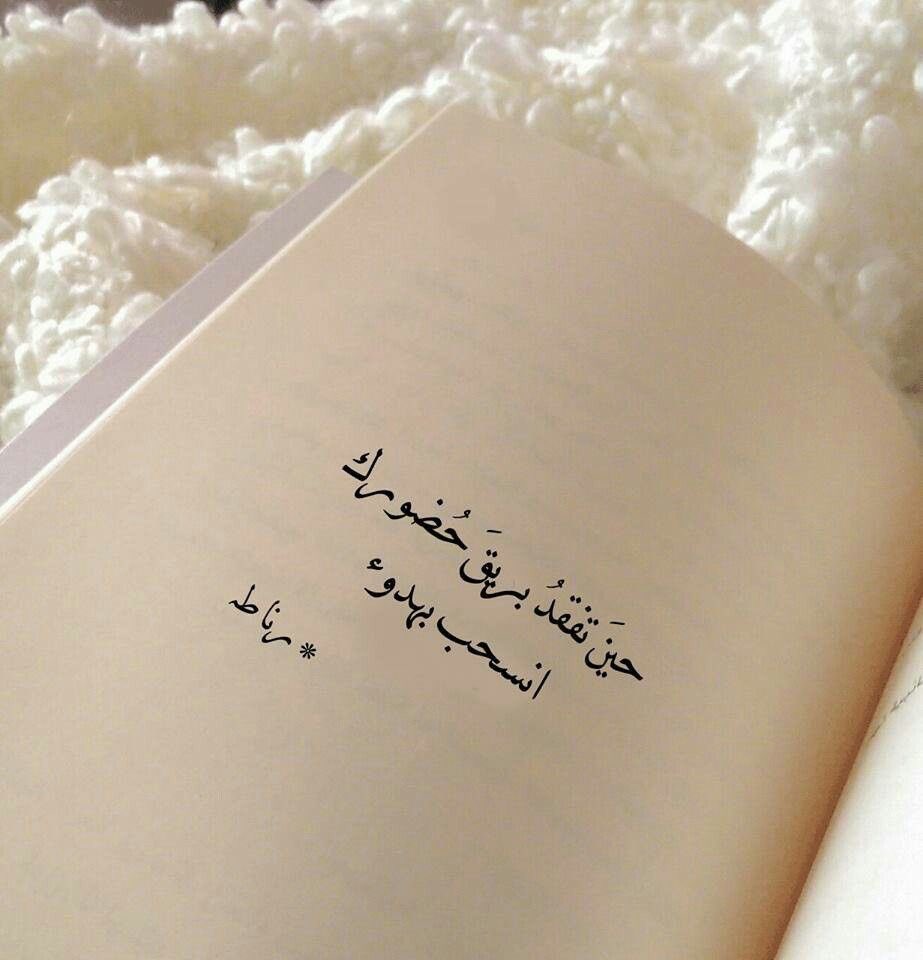 حينَ تفقدُ بريقَ حُضورك
انسحب بهدوء
* رناطه